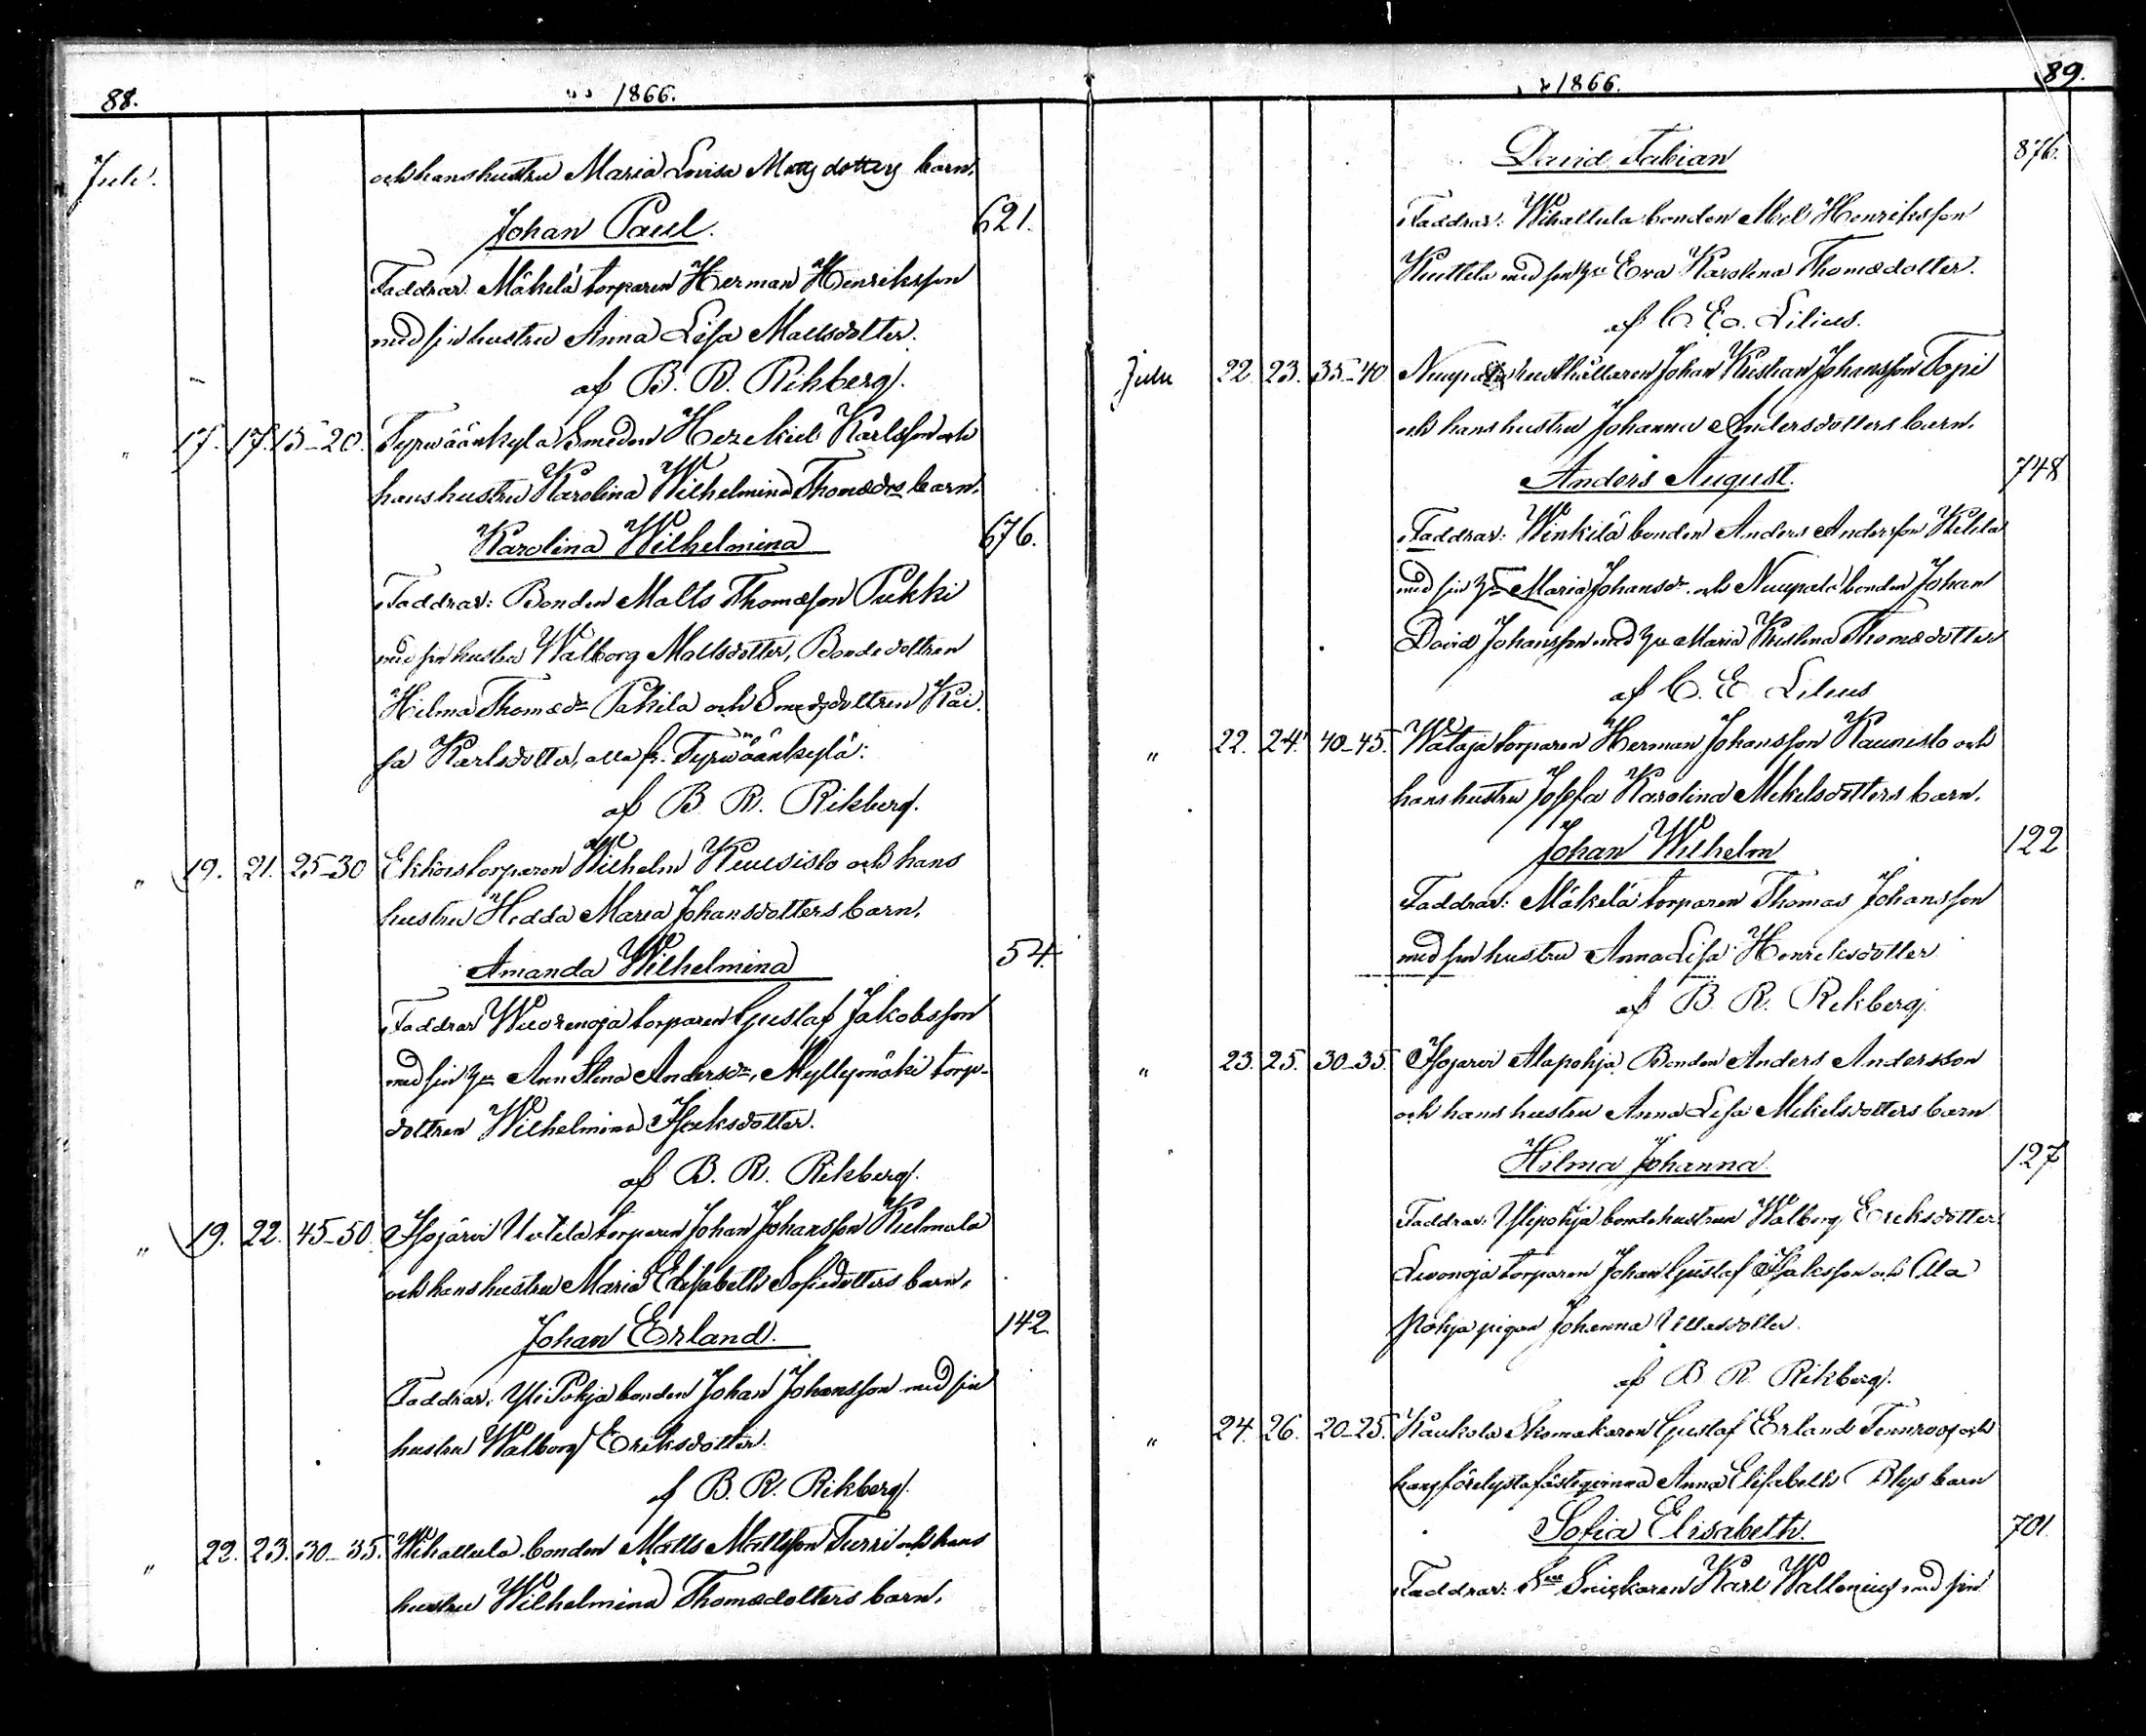 88.
1866.
Juli.
och hans hustru Maria Lovisa Matts dotters barn,
Johan Paul.
621.
Faddrar: Mäkelä torparen Herman Henriksson
med sin hustru Anna Lisa Mattsdotter.
af B. R. Rikberg.
" 17. 17. 15-20. Tyrwäänkylä Smeden Hezekiel Karlsson och
hans hustru Karolina Wilhelmina Thomædrs barn,
Karolina Wilhelmina
676.
Faddrar: Bonden Matts Thomæson Pukki
med sin hustru Walborg Mattsdotter, Bondedottren
Hilma Thomædr Pakila och Smedsdottren Kai-
sa Karlsdotter, alla fr. Tyrwäänkylä:
af B. R. Rikberg.
" 19. 21. 25-30 Ekkois torparen Wilhelm Kuusisto och hans
hustru Hedda Maria Johansdotters barn,
Amanda Wilhelmina
54.
Faddrar Wuorenoja torparen Gustaf Jakobsson
med sin hu Ann Stena Andersdr, Myllymäki torp-
dottren Wilhelmina Isaksdotter.
af B. R. Rikberg.
" 19. 22. 45-50. Isojärvi Uotila torparen Johan Johansson Kulmala
och hans hustru Maria Elisabeth Sofiedotters barn,
Johan Erland.
142.
Faddrar: Yli Pohja bonden Johan Johansson med sin
hustru Walborg Eriksdotter.
af B. R. Rikberg.
" 22. 23. 30-35. Wihattula bonden Matts Mattsson Turri och hans
hustru Wilhelmina Thomædotters barn,
1866.
89.
David Fabian
876.
Faddrar: Wihattula bonden Abel Henriksson
Kuuttila med sin hu Eva Karolina Thomædotter.
af C. E. Lilius.
Juli 22. 23. 35-40 Nuupala husthållaren Johan Kristian Johansson Topi
och hans hustru Johanna Andersdotters barn,
Anders August.
748
Faddrar: Winkilä bonden Anders Andersson Kilila
med sin hu Maria Johansdr. och Nuupala bonden Johan
David Johansson med hu Maria Kristina Thomædotter
af C. E. Lilius
" 22. 24. 40-45. Wataja torparen Herman Johansson Kaunisto och
hans hustru Josefa Karolina Mikelsdotters barn.
Johan Wilhelm
122
Faddrar: Mäkelä torparen Thomas Johansson
med sin hustru Anna Lisa Henriksdotter
af B. R. Rikberg.
" 23. 25. 30-35. Isojärvi Alapohja Bonden Anders Andersson
och hans hustru Anna Lisa Mikelsdotters barn
Hilma Johanna
127
Faddrar: Ylipohja bondehustrun Walborg Eriksdotter
Livonoja torparen Johan Gustaf Isaksson och Ala
pohja pigan Johanna Villasdotter.
af B. R. Rikberg.
" 24. 26. 20-25. Kaukola Skomakaren Gustaf Erland Tennroos och
hans förelysta fästeqvinna Anna Elisabeth Blys barn
Sofia Elisabeth.
701.
Faddrar: Snickaren Karl Wallenius med sin